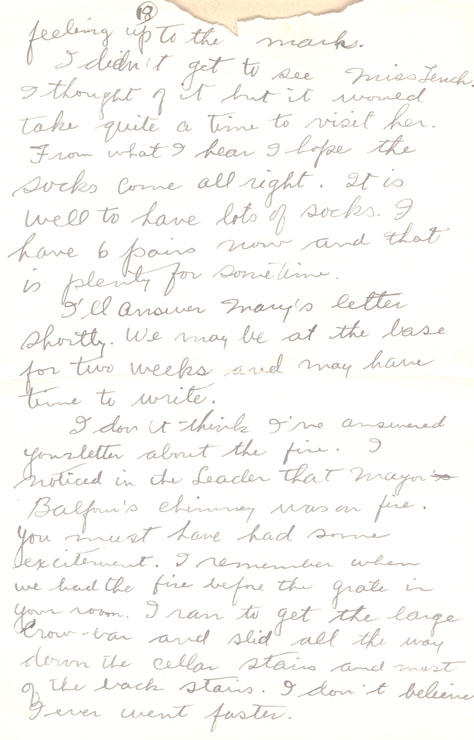 18
feeling up to the mark.
I didn't get to see Miss Tench.
I thought of it but it would
take quite a time to visit her.
From what I hear I hope the
socks come all right. It is
well to have lots of socks. I
have 6 pairs now and that
is plenty for sometime.
I'll answer Mary's letter
shortly. We may be at the base
for two weeks and may have
time to write.
I don't think I've answered
your letter about the fire. I
noticed in the Leader that Mayor
Balfour's chimney was on fire.
You must have had some
excitement. I remember when
we had the fire before the grate in
your room. I ran to get the large
crow-bar and slid all the way
down the cellar stairs and most
of the back stairs. I don't believe
I ever went faster.